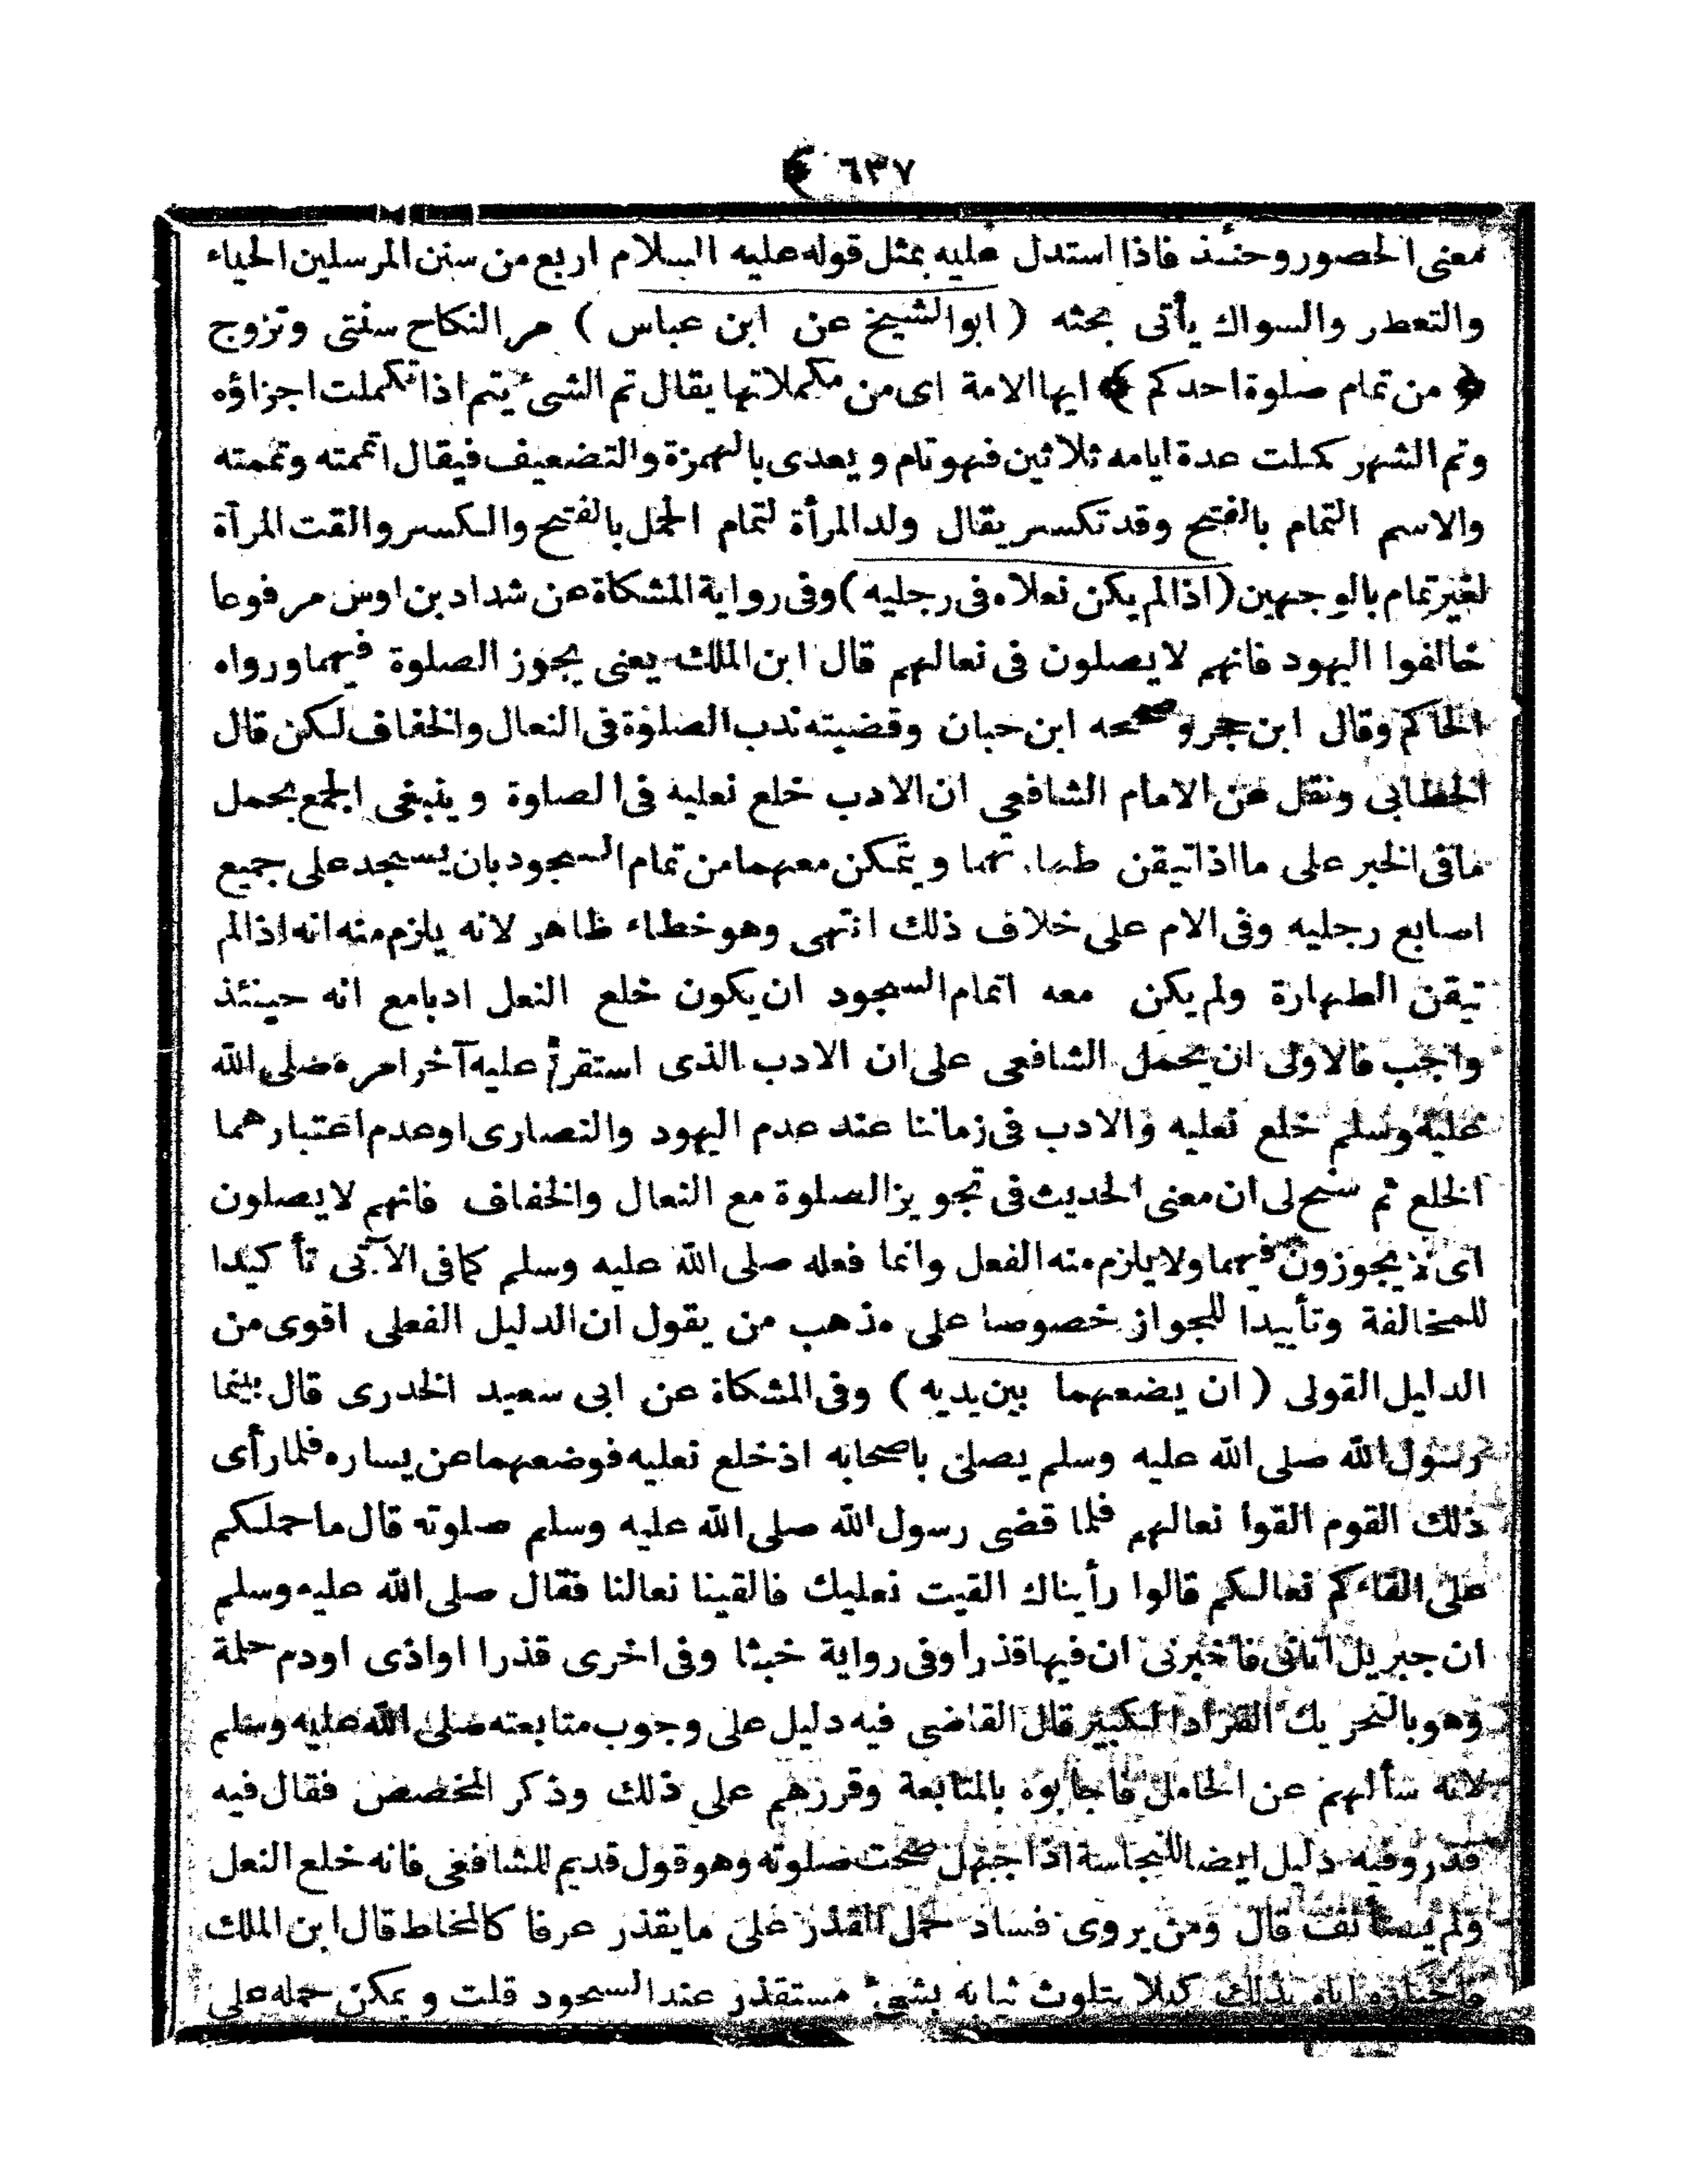 ٦٣٧ ﴾
معنى الحصور وحنئذ فاذا استدل عليه بمثل قوله عليه السلام اربع من سنن المرسلين الحياء
والتعطر والسواك يأتى بحثه ( ابوالشيخ عن ابن عباس ) مر النكاح سنتى وتزوج
﴿ من تمام صلوة احدكم ﴾ ايها الامة اى من مكملاتها يقال تم الشىء يتم اذا تكملت اجزاؤه
وتم الشهر كملت عدة ايامه ثلاثين فهو تام ويعدى بالهمزة والتضعيف فيقال اتممته وتممته
والاسم التمام بالفتح وقد تكسر يقال ولد المرأة لتمام الحمل بالفتح والكسر والقت المرآة
لغير تمام بالوجهين ( اذا لم يكن نعلاه فى رجليه ) وفى رواية المشكاة عن شداد بن اوس مرفوعا
خالفوا اليهود فانهم لا يصلون فى نعالهم قال ابن الملك يعنى يجوز الصلوة فيهما ورواه
الحاكم وقال ابن حجر وصححه ابن حبان وقضيته ندب الصلوة فى النعال والخفاف لكن قال
الخطابى ونقل عن الامام الشافعى ان الادب خلع نعليه فى الصلوة وينبغى الجمع بحمل
مافى الخبر على ما اذا تيقن طهارتهما ويتمكن معهما من تمام السجود بان يسجد على جميع
اصابع رجليه وفى الام على خلاف ذلك انتهى وهو خطاء ظاهر لانه يلزم منه انه اذا لم
تيقن الطهارة ولم يكن معه اتمام السجود ان يكون خلع النعل ادبا مع انه حينئذ
واجب فالاولى ان يحمل الشافعى على ان الادب الذى استقر عليه آخر امره صلى الله
عليه وسلم خلع نعليه والادب فى زماننا عند عدم اليهود والنصارى او عدم اعتبارهما
الخلع ثم سنح لى ان معنى الحديث فى تجويز الصلوة مع النعال والخفاف فانهم لا يصلون
اى لا يجوزون فيهما ولا يلزم منه الفعل وانما فعله صلى الله عليه وسلم كما فى الآتى تأكيدا
للمخالفة وتأييدا للجواز خصوصا على مذهب من يقول ان الدليل الفعلى اقوى من
الدليل القولى ( ان يضعهما بين يديه ) وفى المشكاة عن ابى سعيد الخدرى قال بينما
رسول الله صلى الله عليه وسلم يصلى باصحابه اذ خلع نعليه فوضعهما عن يساره فلما رأى
ذلك القوم القوا نعالهم فلما قضى رسول الله صلى الله عليه وسلم صلوته قال ما حملكم
على القاءكم نعالكم قالوا رأيناك القيت نعليك فالقينا نعالنا فقال صلى الله عليه وسلم
ان جبريل اتانى فاخبرنى ان فيها قذرا وفى رواية خبثا وفى اخرى قذرا او اذى او دم حلمة
وهو بالتحريك القراد الكبير قال القاضى فيه دليل على وجوب متابعته صلى الله عليه وسلم
لانه سألهم عن الحامل فاجابوه بالمتابعة وقررهم على ذلك وذكر المخصص فقال فيه
قذر وفيه دليل ايضا للنجاسة اذا جهل صحت صلوته وهو قول قديم للشافعى فانه خلع النعل
ولم يستأنف قال ومن يروى فساد حمل القذر على ما يقذر عرفا كالمخاط قال ابن الملك
فاخباره اياه بذلك كيلا يتلوث ثيابه بشىء مستقذر عند السجود قلت ويمكن حمله على